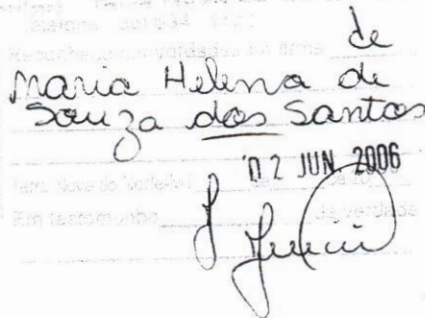 Reconheço verdadeira a firma
de
Maria Helena de
Souza dos Santos
02 JUN 2006
Terra Nova do Norte-MT
Em testemunho da verdade